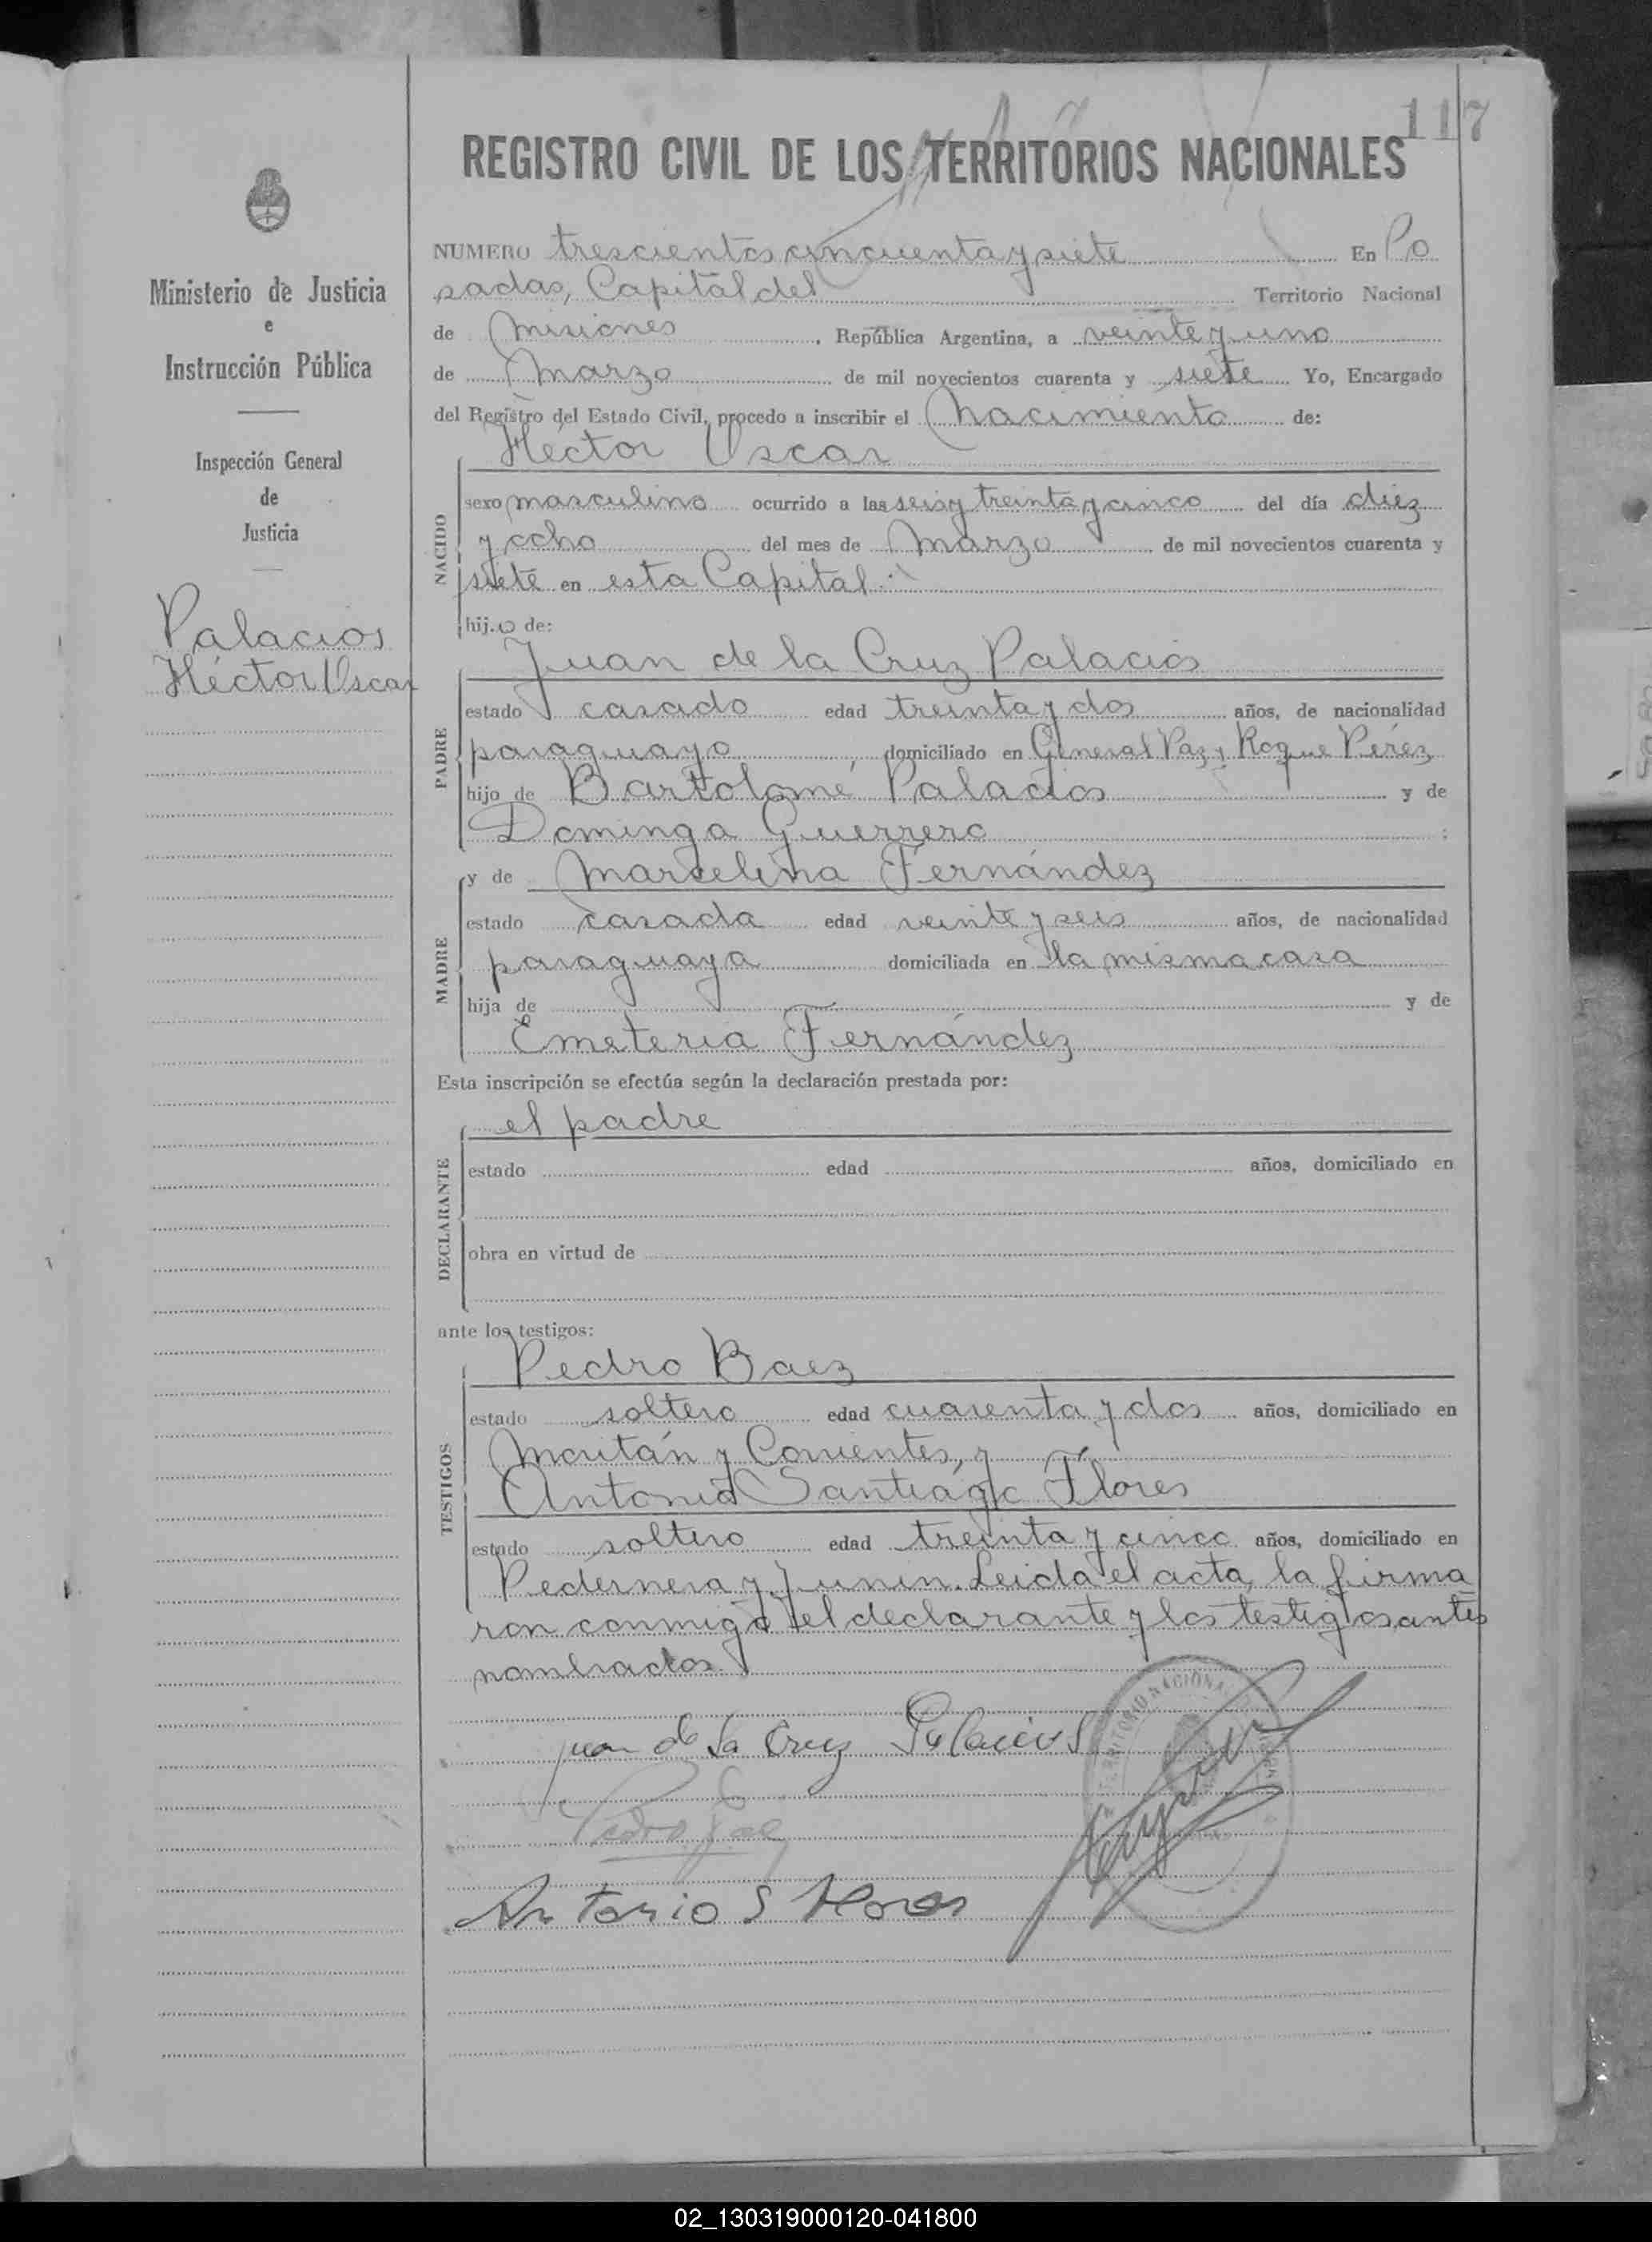 117
REGISTRO CIVIL DE LOS TERRITORIOS NACIONALES
Ministerio de Justicia
e
Instrucción Pública
Inspección General
de
Justicia
Palacios
Héctor Oscar
NUMERO trescientos cincuenta y siete En Po
sadas, Capital del Territorio Nacional
de Misiones, República Argentina, a veinte y uno
de Marzo de mil novecientos cuarenta y siete Yo, Encargado
del Registro del Estado Civil, procedo a inscribir el Nacimiento de:
Héctor Oscar
NACIDO
sexo masculino ocurrido a las seis y treinta y cinco del día diez
y ocho del mes de Marzo de mil novecientos cuarenta y
siete en esta Capital.
hijo de:
Juan de la Cruz Palacios
PADRE
estado casado edad treinta y dos años, de nacionalidad
paraguayo domiciliado en General Paz y Roque Pérez
hijo de Bartolomé Palacios y de
Dominga Guerrero ;
y de Marcelina Fernández
MADRE
estado casada edad veinte y seis años, de nacionalidad
paraguaya domiciliada en la misma casa
hija de y de
Emeteria Fernández
Esta inscripción se efectúa según la declaración prestada por:
el padre
DECLARANTE
estado edad años, domiciliado en
obra en virtud de
ante los testigos:
Pedro Baez
TESTIGOS
estado soltero edad cuarenta y dos años, domiciliado en
y Corrientes, y
Antonio Santiago Flores
estado soltero edad treinta y cinco años, domiciliado en
Pedernera y Junin. Leida el acta, la firma
ron conmigo el declarante y los testigos antes
nombrados.
Juan de la Cruz Palacios
Pedro Baez
Antonio S Flores
02_130319000120-041800